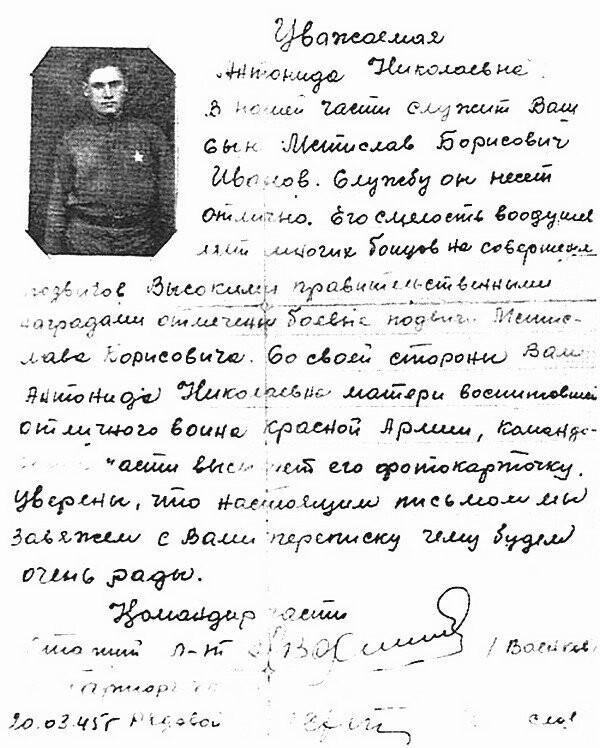 Уважаемая
Антонида Николаевна.
В нашей части служит Ваш
сын Мстислав Борисович
Иванов. Службу он несет
отлично. Его смелость воодушев
ляет многих бойцов на совершение
подвигов Высокими правительственными
наградами отмечены боевые подвиги Мстис-
лава Борисовича. Со своей стороны Вам
Антонида Николаевна матери воспитавшей
отличного воина Красной Армии, командо-
части высылает его фотокарточку.
Уверены, что настоящим письмом мы
завяжем с Вами переписку чему будем
очень рады.
Командир части
Старший л-т
Парторг
20.03.45г Рядовой